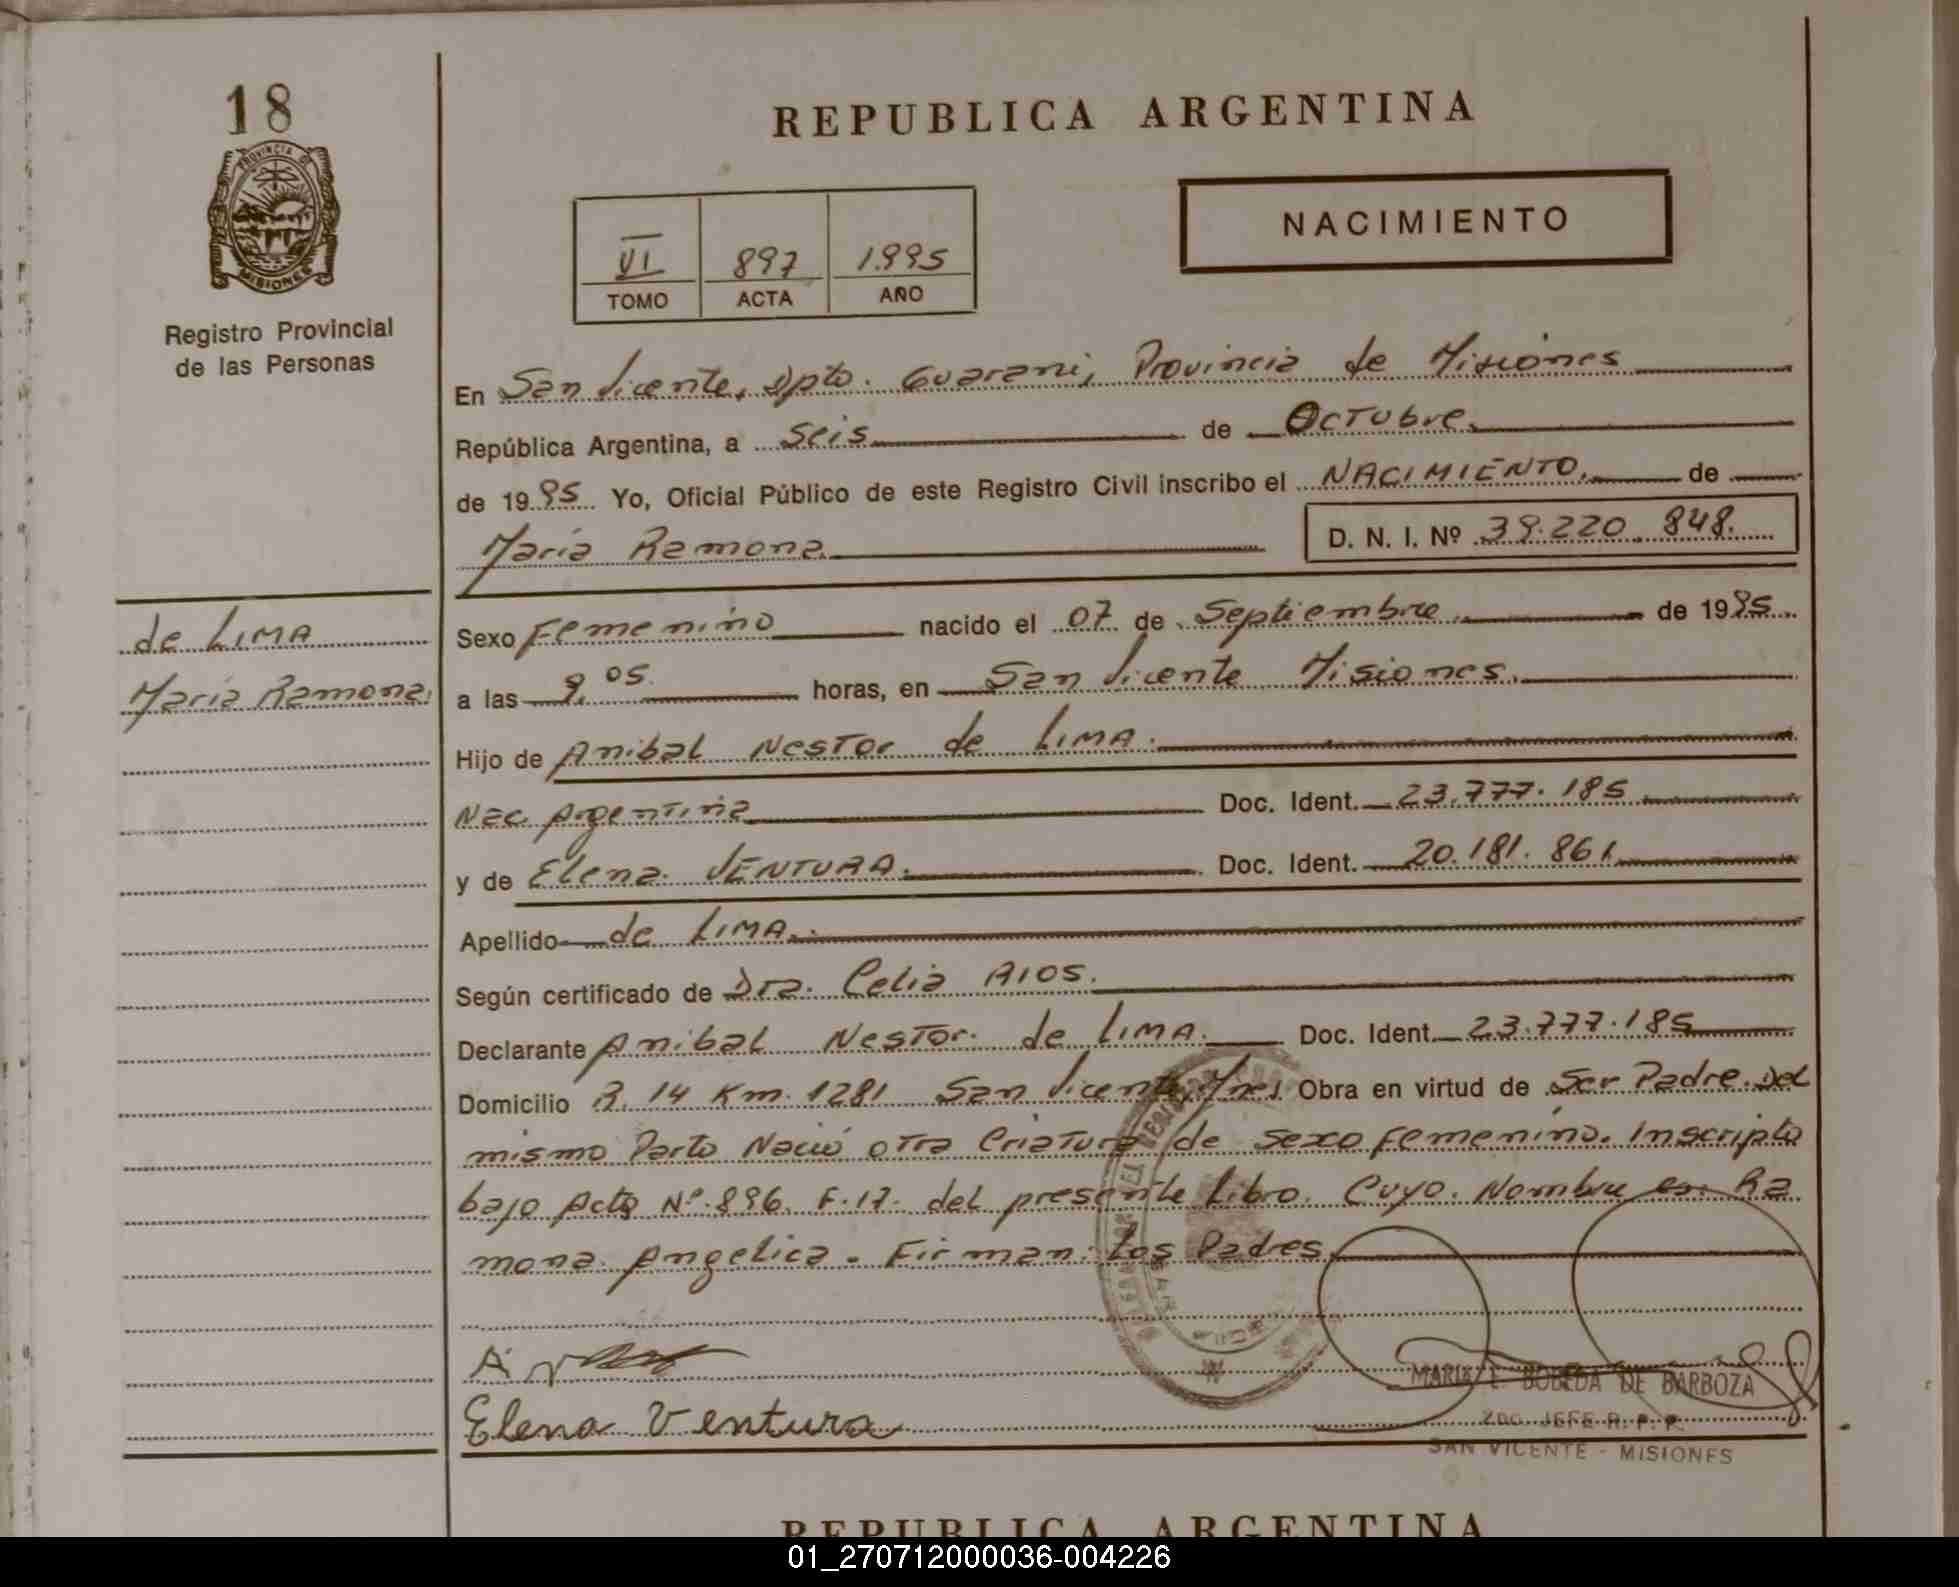 18
PROVINCIA DE
MISIONES
Registro Provincial
de las Personas
REPUBLICA ARGENTINA
NACIMIENTO
VI 897 1.995
TOMO ACTA AÑO
En San Vicente, Dpto. Guarani, Provincia de Misiones
República Argentina, a Seis de Octubre.
de 1995 Yo, Oficial Público de este Registro Civil inscribo el NACIMIENTO. de
María Ramona. D. N. I. Nº 39.220.848.
de LIMA
María Ramona.
Sexo Femenino nacido el 07 de Septiembre. de 1995
a las 9,05. horas, en San Vicente Misiones.
Hijo de Anibal Nestor de LIMA.
Nac Argentina Doc. Ident. 23.777.185
y de Elena. VENTURA. Doc. Ident. 20.181.861
Apellido de LIMA.
Según certificado de Dra. Celia Aios.
Declarante Anibal Nestor. de LIMA. Doc. Ident. 23.777.185
Domicilio R. 14 Km. 1281 San Vicente, Mnes Obra en virtud de Ser Padre. Del
mismo Parto Nació otra Criatura de sexo Femenino. Inscripto
bajo Acta Nº. 896. F. 17. del presente Libro. Cuyo. Nombre es: Ra
mona. Angelica. Firman: Los Padres.
Elena Ventura
MARIA E. BOBEDA DE BARBOZA
2do. JEFE R. P. P.
SAN VICENTE - MISIONES
REPUBLICA ARGENTINA
01_270712000036-004226